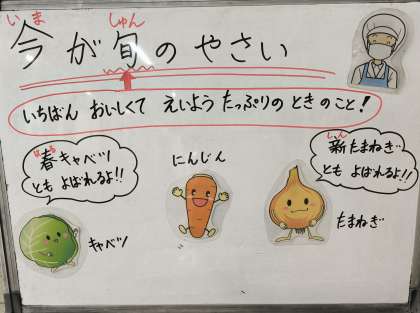 いま しゅん
今が旬のやさい
いちばん おいしくて えいよう たっぷりの ときのこと!
はる
春キャベツ
とも よばれるよ!!
にんじん
しん
新たまねぎ
とも よばれるよ!!
キャベツ
たまねぎ